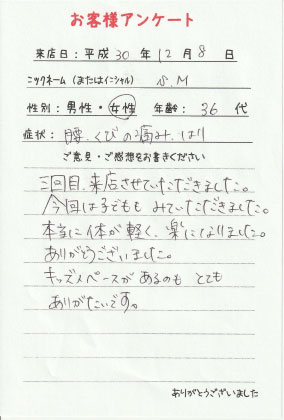 お客様アンケート
来店日：平成 30 年 12 月 8 日
ニックネーム（またはイニシャル） S.M
性別：男性・女性 年齢：36 代
症状：腰、くびの痛み、はり
ご意見・ご感想をお書きください
三回目、来店させていただきました。
今回は子どももみていただきました。
本当に体が軽く、楽になりました。
ありがとうございました。
キッズスペースがあるのもとても
ありがたいです。
ありがとうございました